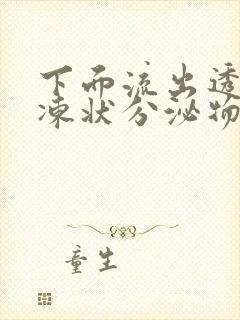 下面流出透
凍状分泌物
童生